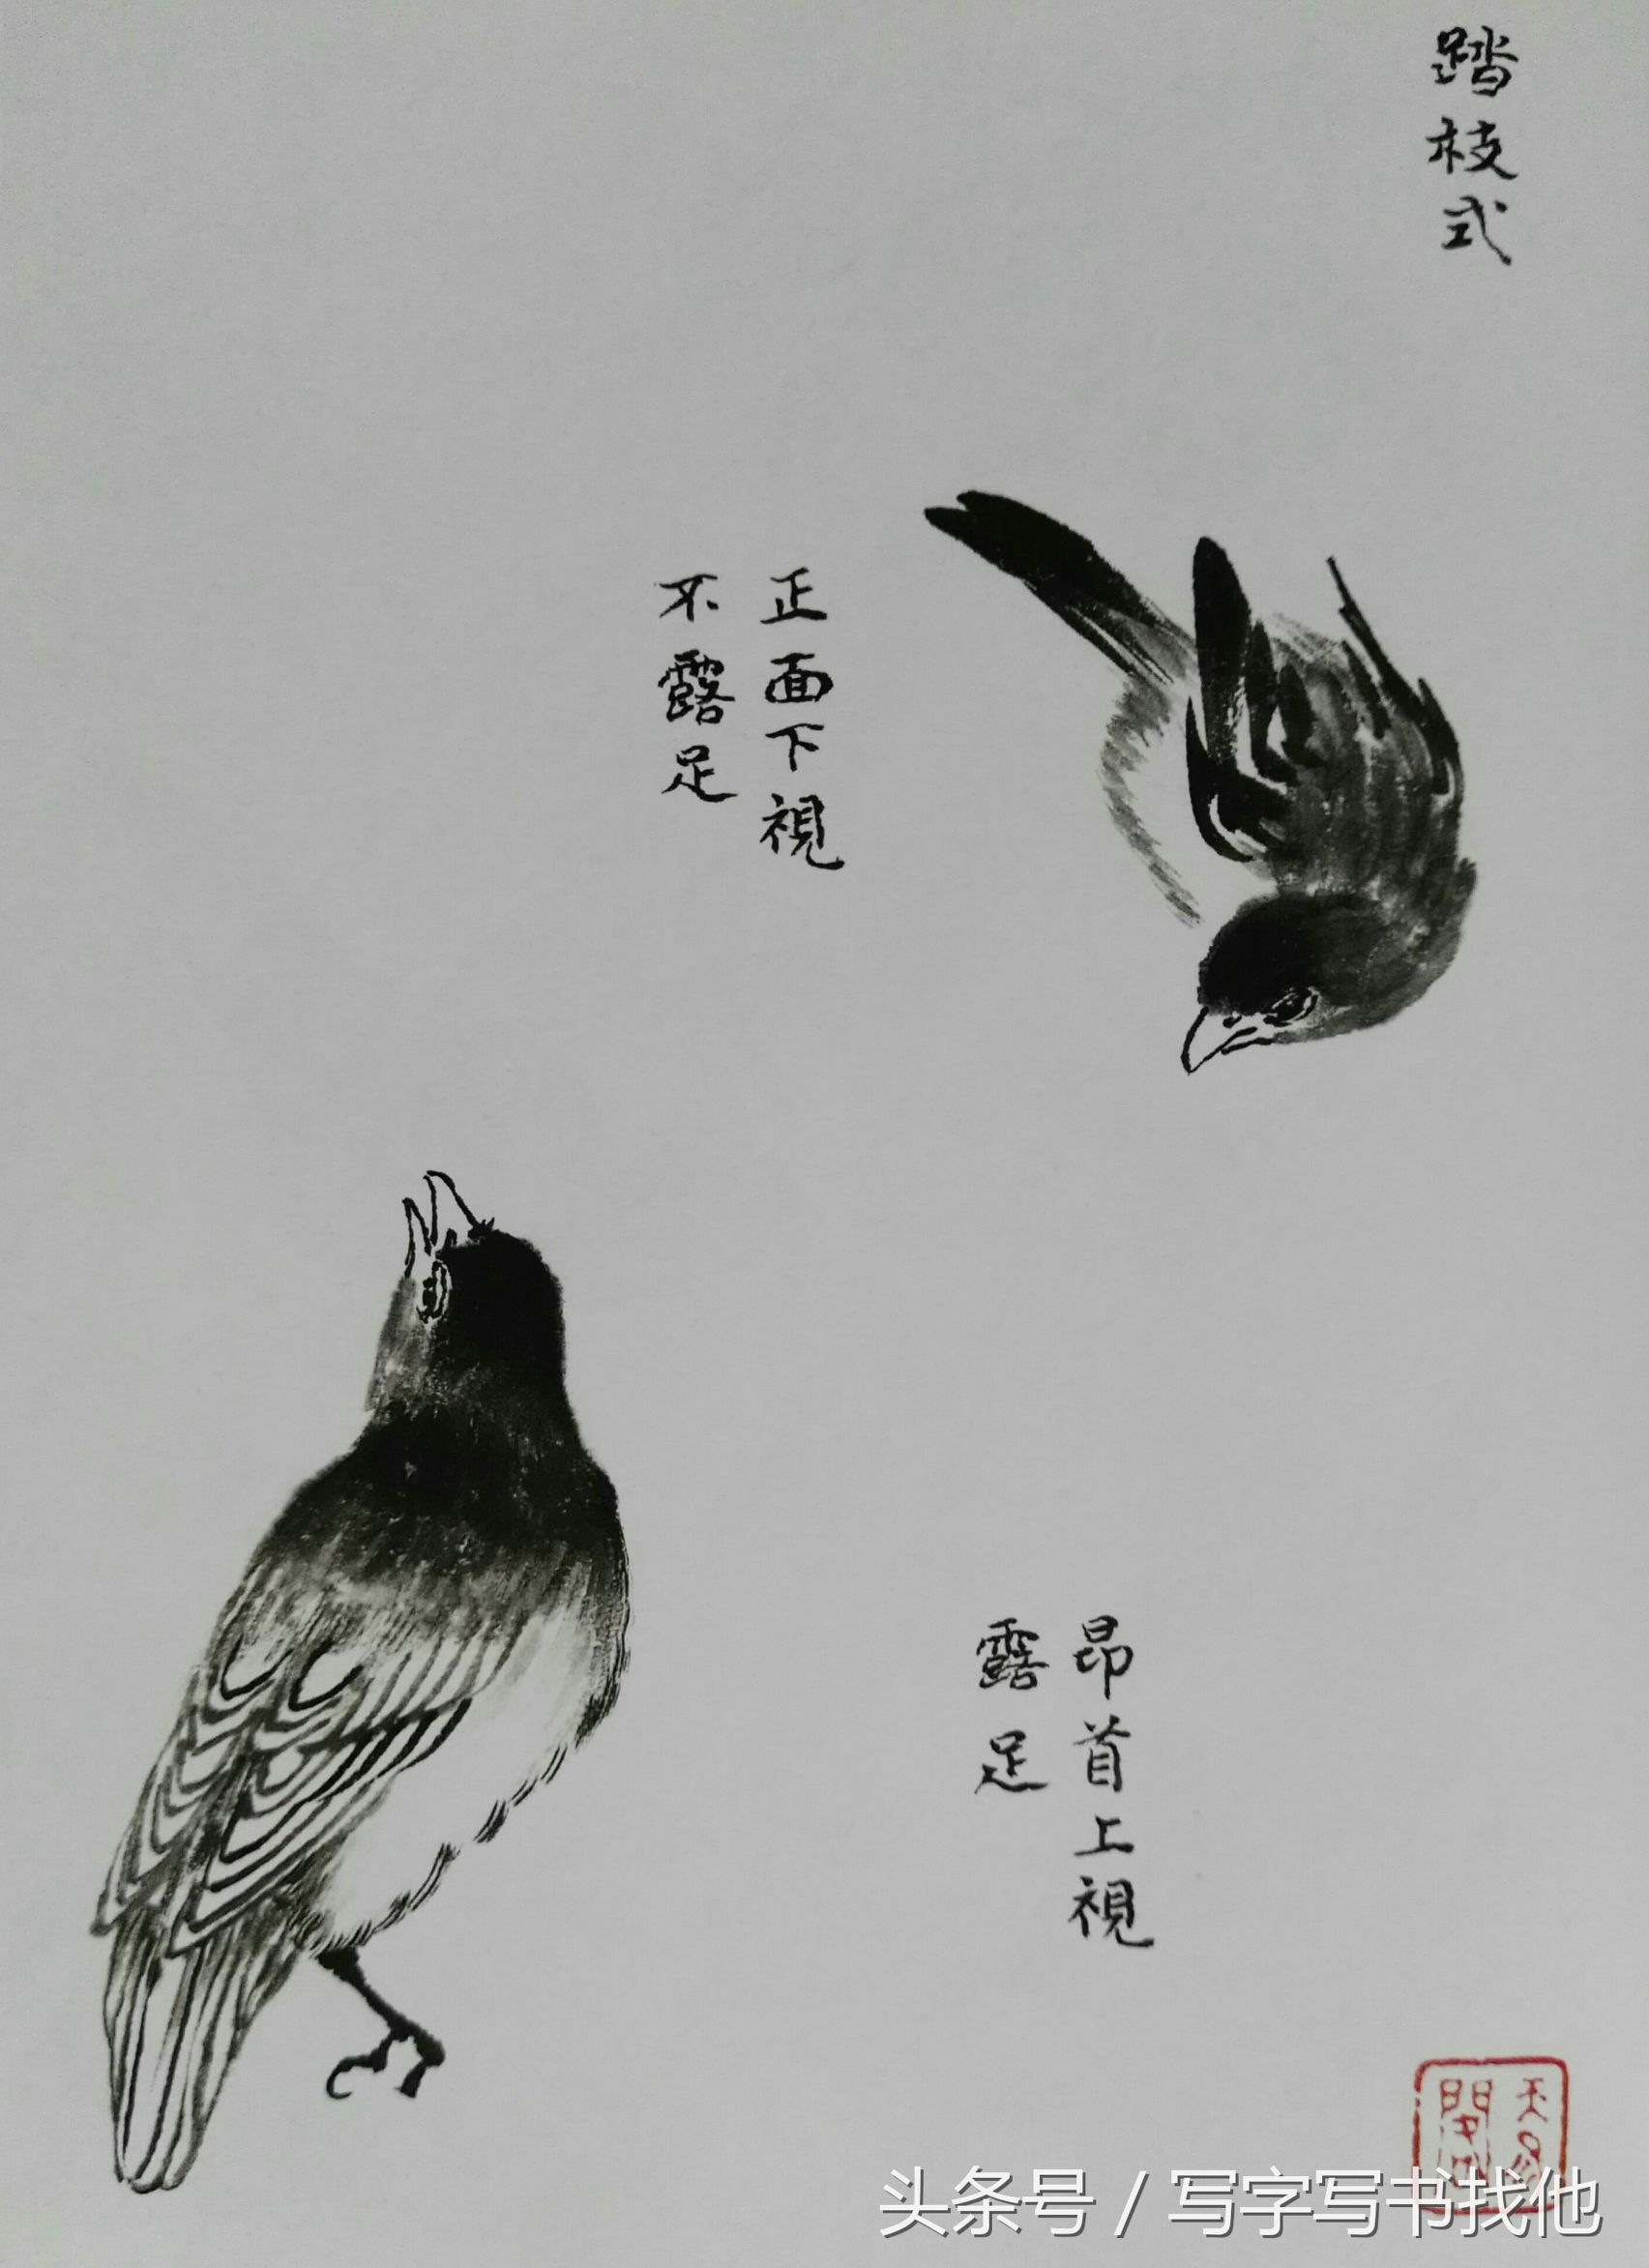 踏枝式
正面下視
不露足
昂首上視
露足
头条号 / 写字写书找他